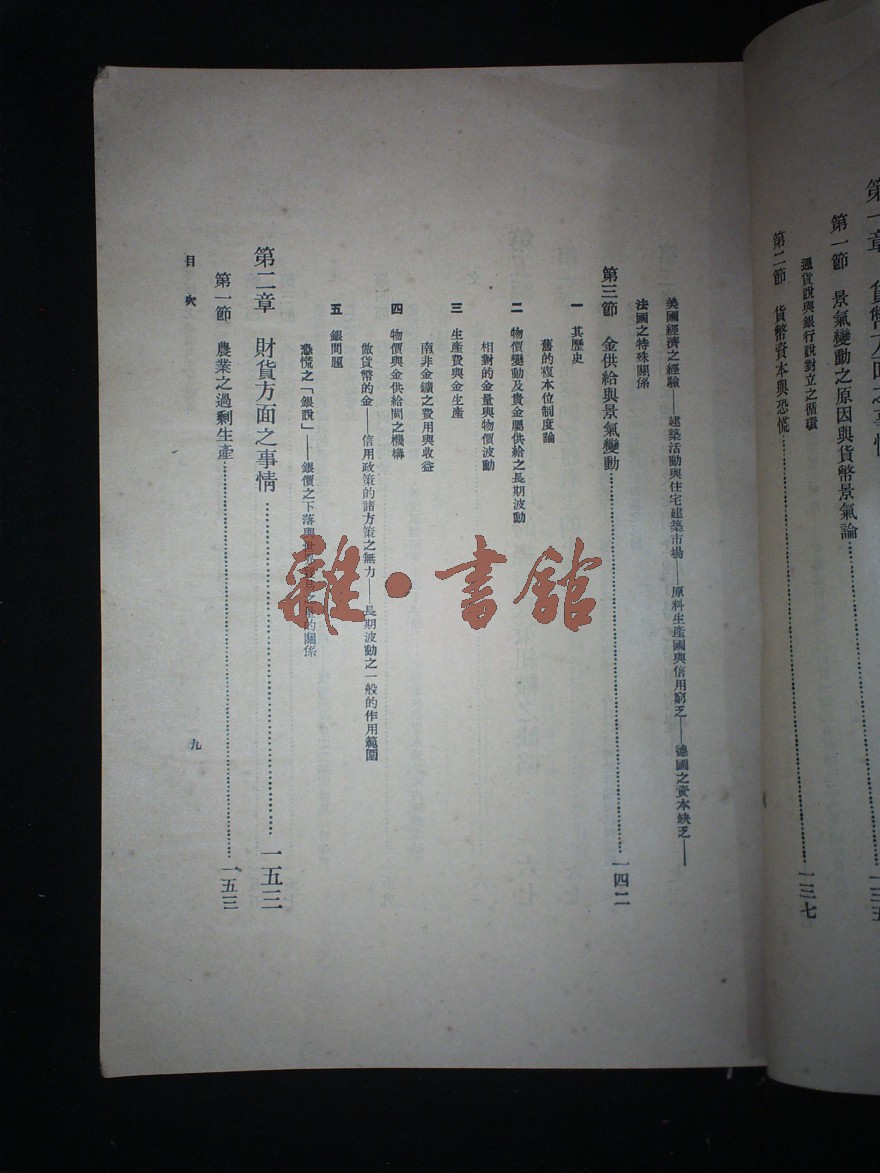 第一章 貨幣方面之事情
第一節 景氣變動之原因與貨幣景氣論……一三五
通貨說與銀行說對立之循環
第二節 貨幣資本與恐慌……一三七
美國經濟之經驗——建築活動與住宅建築市場——原料生產國與信用窮乏——德國之資本缺乏——
法國之特殊關係
第三節 金供給與景氣變動……一四二
一 其歷史
舊的複本位制度論
二 物價變動及貴金屬供給之長期波動
相對的金量與物價波動
三 生產費與金生產
南非金鑛之費用與收益
四 物價與金供給間之機構
做貨幣的金——信用政策的諸方策之無力——長期波動之一般的作用範圍
五 銀問題
恐慌之「銀說」——銀價之下落與世界的關係
第二章 財貨方面之事情……一五三
第一節 農業之過剩生產……一五三
目次
九
雜·書館